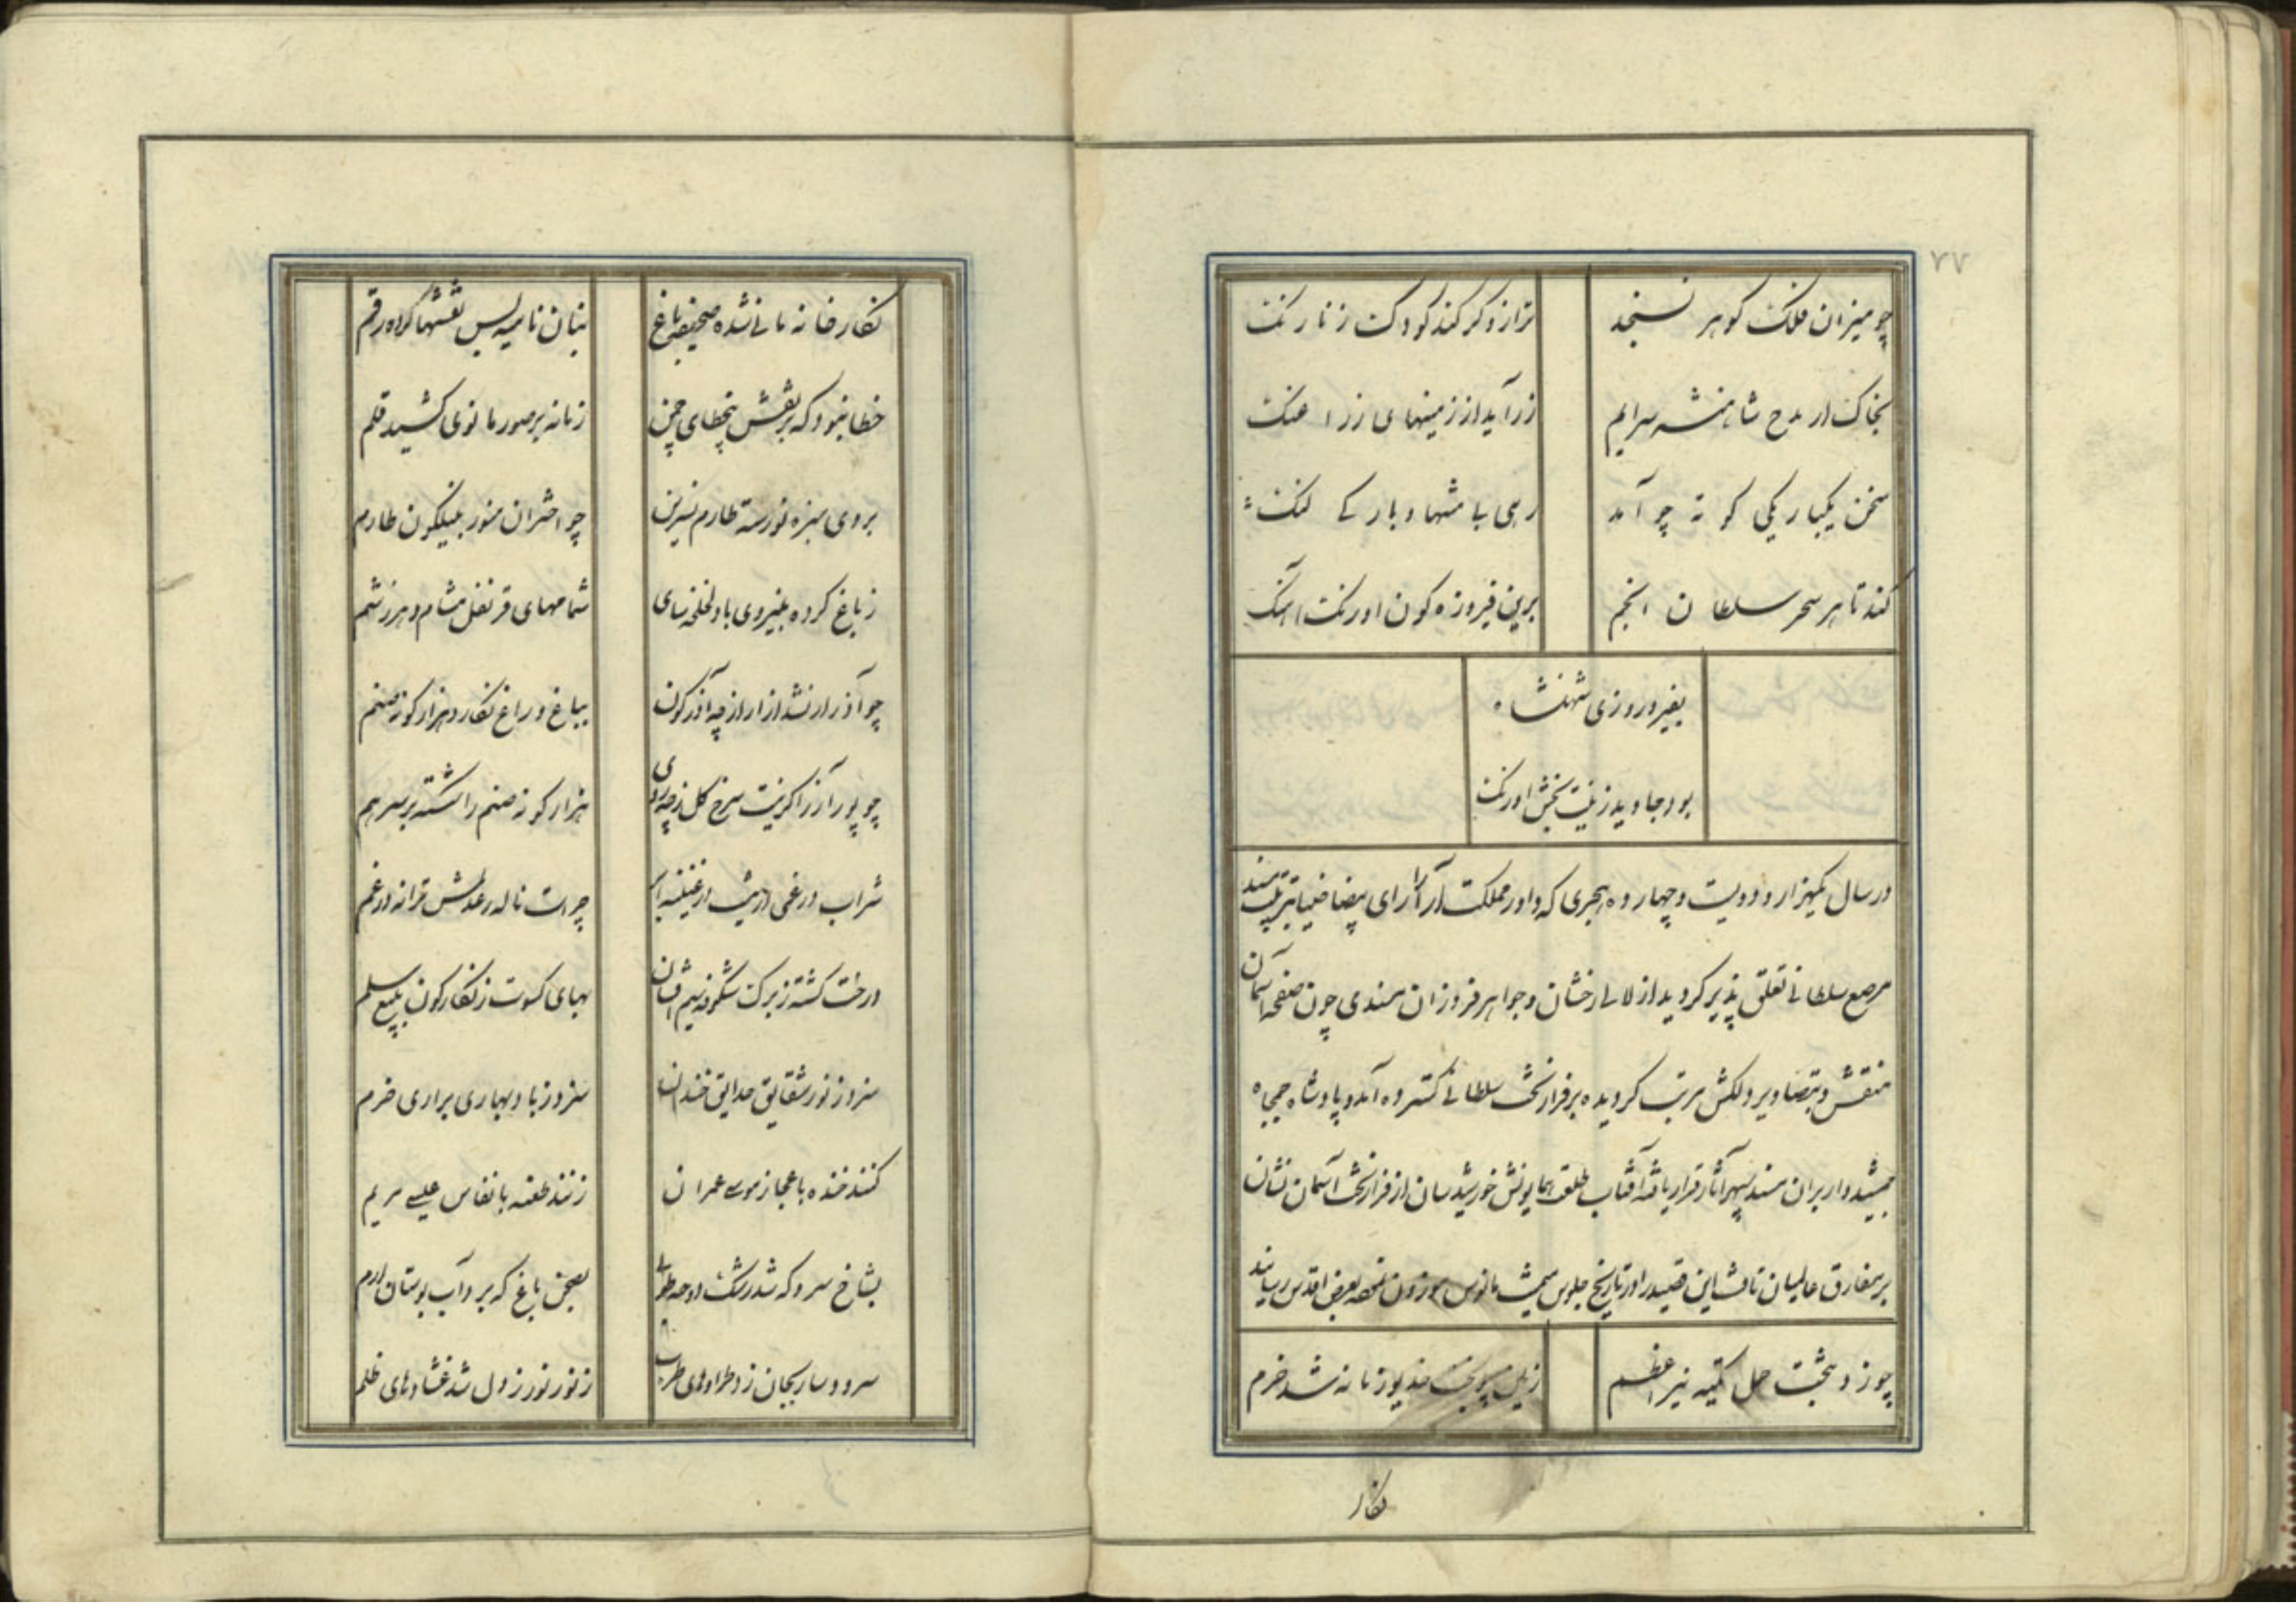 ۷۷
چو میزان فلک گوهر نسنجد
ترازو گر کند کودک ز نارنگ
بخاک ار مدح شاهنشه سرایم
زر آید از زمینهای زر
سخن یکبارکی کوته چو آمد
رهی با منتها و بارکی لنگ
کند تا هر سحر سلطان انجم
برین فیروزه کون اورنک آهنگ
بفیروروزی شهنشاه
بود جاوید زینت بخش اورنک
در سال یکهزار و دویست و چهارده هجری که داور مملکت آرا را رای بیضا ضیا بترتیب مسند
مرصع سلطانی تعلق پذیر کردید از لالی رخشان و جواهر فروزان مسندی چون صفحه آسمان
منقش و بتصاویر دلکش مرتب کردیده بر فراز تخت سلطانی کسترده آمد و پادشاه جمجاه
جمشیدوار بران مسند سپهر آثار قرار یافته آفتاب طلعت همایونش خورشیدسان از فراز تخت آسمان نشان
بر مفارق عالمیان تافت این قصیده را در تاریخ جلوس میمنت مانوس موزون نموده بعرض اقدس رسانید
چو زد بتخت حمل تکیه نیر اعظم
خدیو زمانه شد خرم
نکار
نکارخانه مانی شده صحیفه باغ
بنان نامیه بس نقشها کرده رقم
خطا نبود که بر نقش بتخطای چین
زمانه بر صور مانوی کشید قلم
بروی سبزه نورسته طارم نسرین
چو اختران منور بنیلکون طارم
ز باغ کرده بنیروی باد لخلخه سای
شمامهای قرنفل مشام دهر زشم
چو آذر ار نشد آزار از چه آذرکون
بباغ و راغ نکارد هزار کونه صنم
چو پور آزر اکر نیست سرخ کل ز چه روی
هزار کونه صنم را شکسته بر سر هم
شراب در غمی
چراست ناله رعدش ترانه در غم
درخت کشته ز برک شکوفه سیم افشان
بهای کسوت زنکارکون ببیع سلم
سزد ز نور شقایق حدایق خندان
سزد ز باد بهاری براری خرم
کنند خنده باعجاز موسی عمران
زنند طعنه بانفاس عیسی مریم
بشاخ سرو که شد رشک دوحه طوبی
بصحن باغ که برد آب بوستان ارم
سرود سار بجان زد طرادهای طرب
ز نور نور ز دل شد غشاوهای ظلم